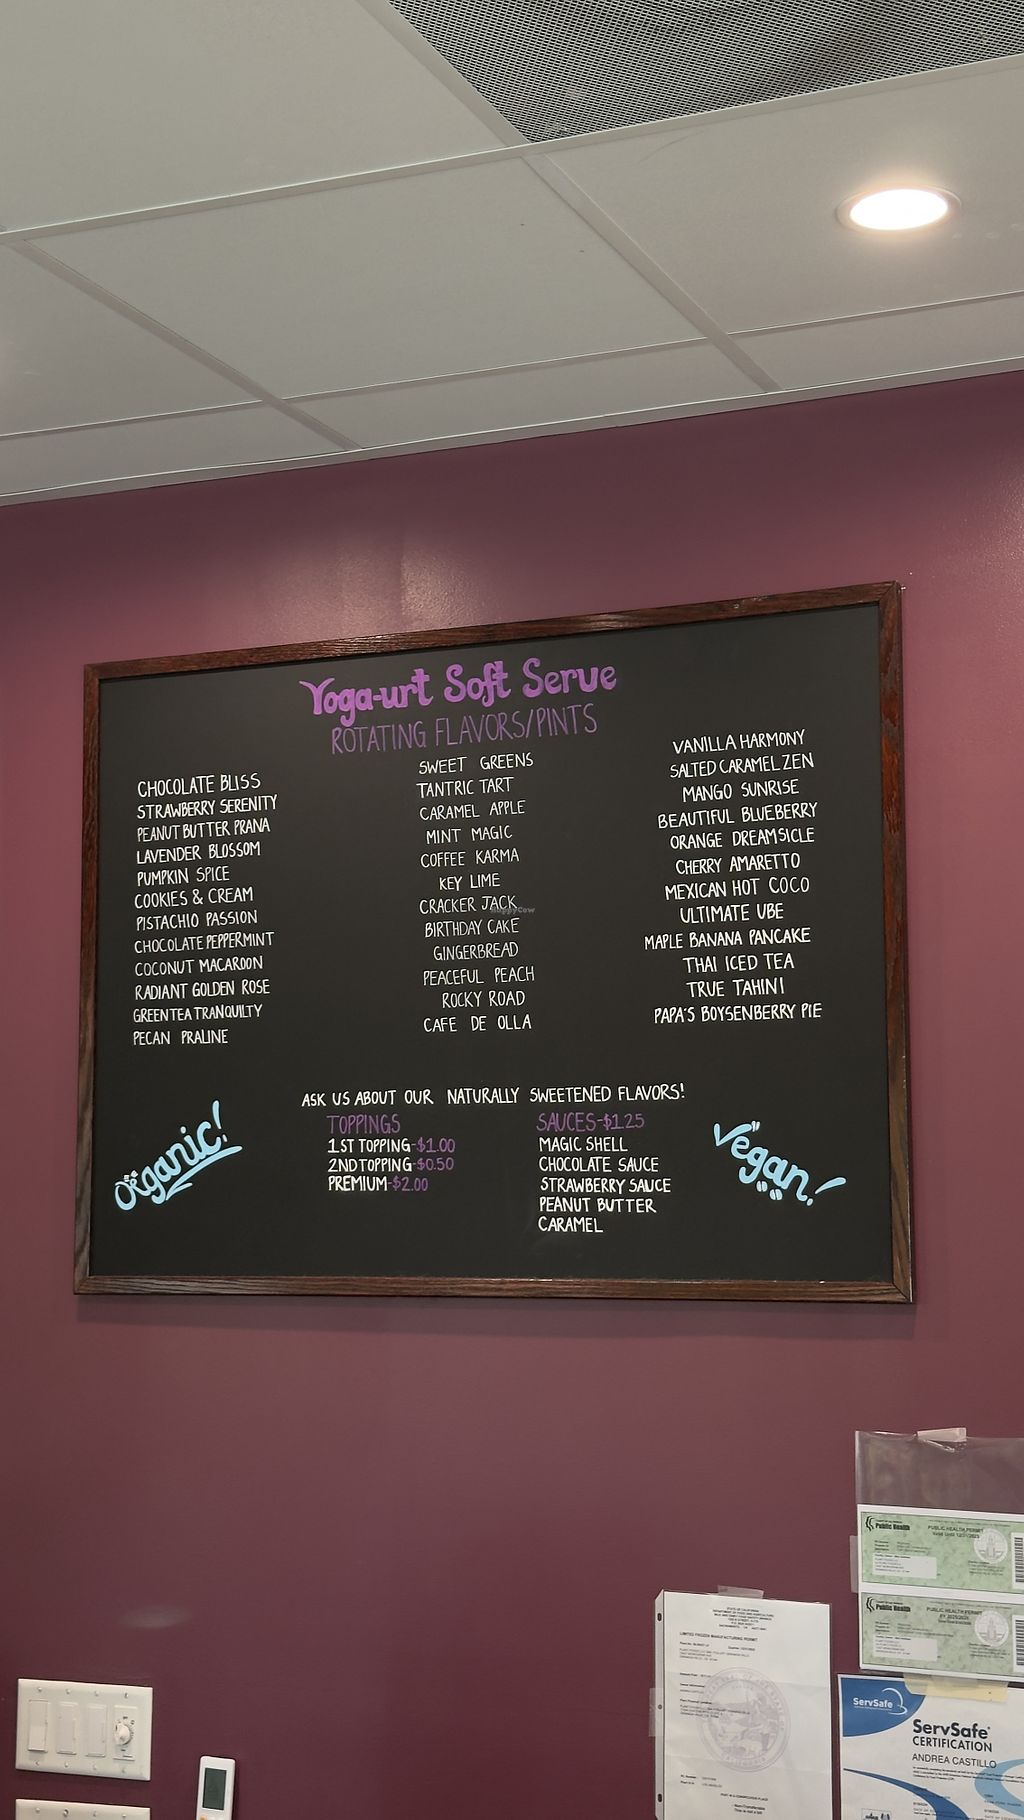 Yoga-urt Soft Serve
ROTATING FLAVORS/PINTS
CHOCOLATE BLISS
STRAWBERRY SERENITY
PEANUT BUTTER PRANA
LAVENDER BLOSSOM
PUMPKIN SPICE
COOKIES & CREAM
PISTACHIO PASSION
CHOCOLATE PEPPERMINT
COCONUT MACAROON
RADIANT GOLDEN ROSE
GREEN TEA TRANQUILTY
PECAN PRALINE
SWEET GREENS
TANTRIC TART
CARAMEL APPLE
MINT MAGIC
COFFEE KARMA
KEY LIME
CRACKER JACK
BIRTHDAY CAKE
GINGERBREAD
PEACEFUL PEACH
ROCKY ROAD
CAFE DE OLLA
VANILLA HARMONY
SALTED CARAMEL ZEN
MANGO SUNRISE
BEAUTIFUL BLUEBERRY
ORANGE DREAMSICLE
CHERRY AMARETTO
MEXICAN HOT COCO
ULTIMATE UBE
MAPLE BANANA PANCAKE
THAI ICED TEA
TRUE TAHINI
PAPA'S BOYSENBERRY PIE
HappyCow
ASK US ABOUT OUR NATURALLY SWEETENED FLAVORS!
Organic!
TOPPINGS
1ST TOPPING-$1.00
2ND TOPPING-$0.50
PREMIUM-$2.00
SAUCES-$1.25
MAGIC SHELL
CHOCOLATE SAUCE
STRAWBERRY SAUCE
PEANUT BUTTER
CARAMEL
Vegan!
Public Health
PUBLIC HEALTH PERMIT
Public Health
PUBLIC HEALTH PERMIT
STATE OF CALIFORNIA
LIMITED FROZEN MANUFACTURING PERMIT
ServSafe
ServSafe®
CERTIFICATION
ANDREA CASTILLO